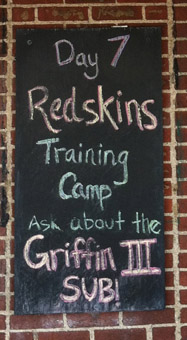 Day 7
Redskins
Training
Camp
Ask about the
Griffin III
SUB!